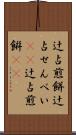 辻占煎餅辻
占せんべい
辻占煎
餅